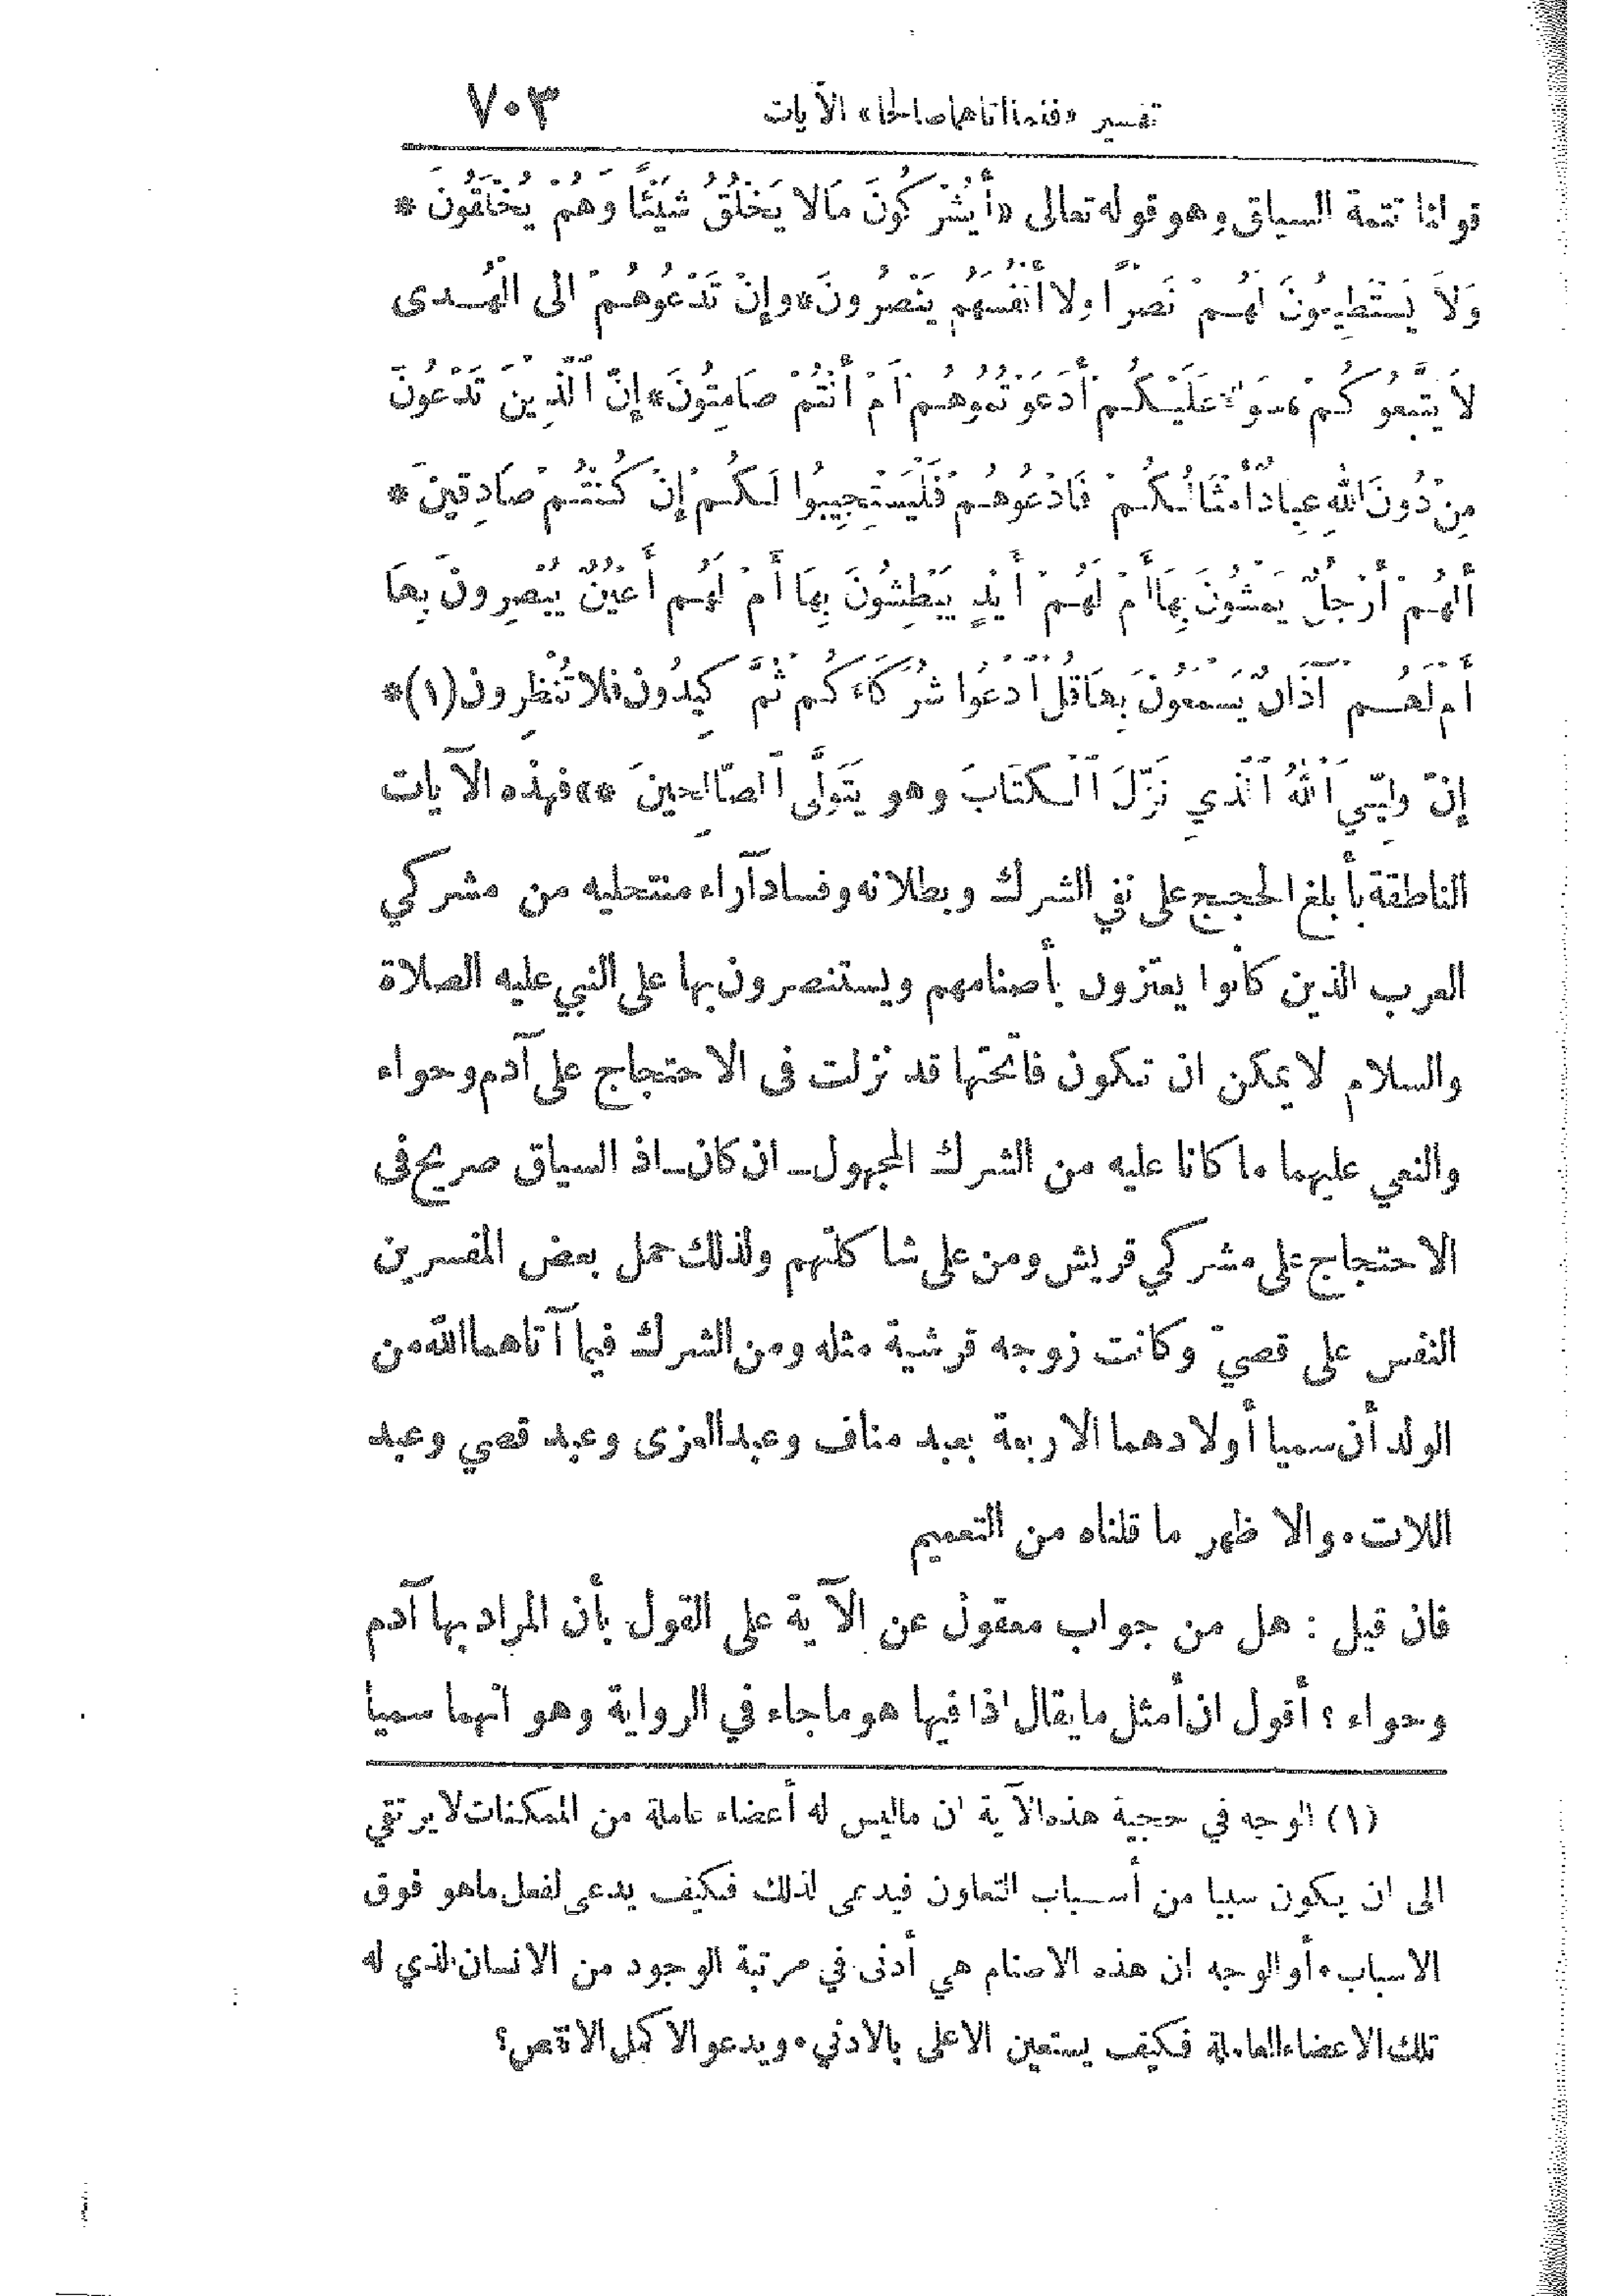 تفسير «فلما آتاهما صالحا» الآيات ٧٠٣
قولنا تتمة السياق وهو قوله تعالى «أَيُشْرِكُونَ مَالا يَخْلُقُ شَيْئًا وَهُمْ يُخْلَقُونَ *
وَلاَ يَسْتَطِيعُونَ لَهُمْ نَصْرًا ولا أَنْفُسَهُم يَنْصُرُونَ * وإِنْ تَدْعُوهُمْ الى الْهُدى
لاَ يَتَّبِعُوكُمْ سَوَاءٌ عَلَيْكُم أَدَعَوْتُمُوهُم أَمْ أَنْتُمْ صَامِتُونَ * إِنَّ الَّذِينَ تَدْعُونَ
مِنْ دُونَ اللهِ عِبادٌ أَمْثَالُكُمْ فَادْعُوهُمْ فَلْيَسْتَجِيبُوا لَكُمْ إِنْ كُنْتُمْ صَادِقِينَ *
أَلَهُمْ أَرْجُلٌ يَمْشُونَ بِهَا أَمْ لَهُمْ أَيْدٍ يَبْطِشُونَ بِهَا أَمْ لَهُم أَعْيُنٌ يُبْصِرونَ بِهَا
أَم لَهُم آذَانٌ يَسْمَعُونَ بِهَا قُلْ ادْعُوا شُرَكَاءَكُم ثُمَّ كِيدُون فلا تُنْظِرون (١) *
إِنَّ وليِّيَ اللهُ الَّذِي نَزَّلَ الْكتَابَ وهو يَتَوَلَّى الصَّالِحِينَ **» فهذه الآيات
الناطقة بأبلغ الحجج على نفي الشرك وبطلانه وفساد آراء منتحليه من مشركي
العرب الذين كانوا يعتزون بأصنامهم ويستنصرون بها على النبي عليه الصلاة
والسلام لا يمكن ان تكون فاتحتها قد نزلت فى الاحتجاج على آدم وحواء
والنعي عليهما ما كانا عليه من الشرك المجهول ــ ان كان ــ اذ السياق صريح فى
الاحتجاج على مشركي قريش ومن على شاكلتهم ولذلك حمل بعض المفسرين
النفس على قصيّ وكانت زوجه قرشية مثله ومن الشرك فيما آتاهما الله من
الولد أن سميا أولادهما الاربعة بعبد مناف وعبد العزى وعبد قصي وعبد
اللات. والا ظهر ما قلناه من التعميم
فان قيل : هل من جواب معقول عن الآية على القول بأن المراد بها آدم
وحواء ؟ أقول ان أمثل ما يقال اذا فيها هو ما جاء في الرواية وهو انهما سميا
(١) الوجه في حجية هذه الآية ان ما ليس له أعضاء عاملة من الممكنات لا يرتقي
الى ان يكون سببا من أسباب التعاون فيدعى لذلك فكيف يدعى لفعل ما هو فوق
الاسباب. أو الوجه ان هذه الاصنام هي أدنى في مرتبة الوجود من الانسان الذي له
تلك الاعضاء العاملة فكيف يستعين الاعلى بالادني. ويدعو الاكمل الانقص؟